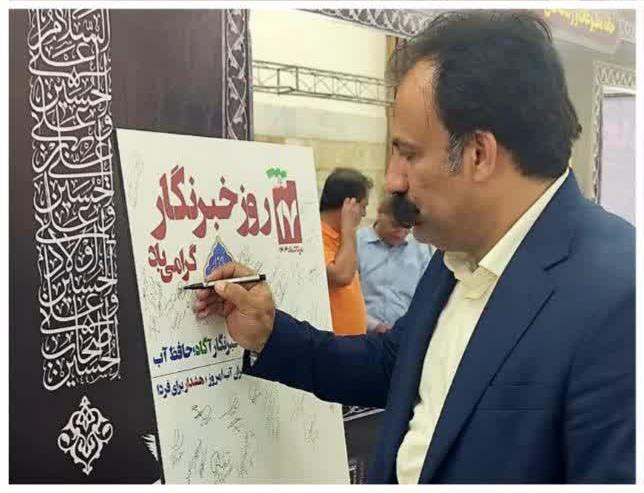 السلام
علی
الحسین
و علی
علی بن
الحسین
و علی
اولاد
الحسین
و علی
اصحاب
الحسین
۱۷
روز خبرنگار
گرامی باد
خبرنگار آگاه؛ حافظ آب
آب امروز، هشدار برای فردا